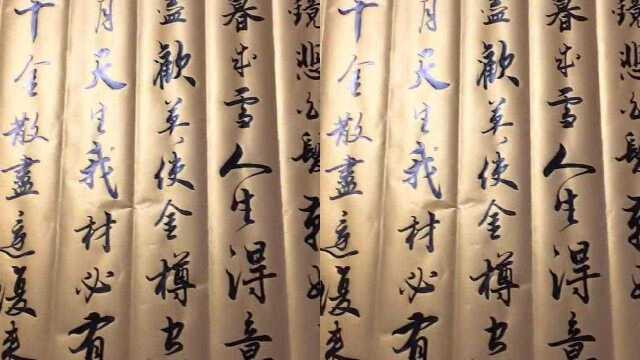 鏡悲白髮朝如
暮成雪人生得意
盡歡莫使金樽
月天生我材必有
千金散盡還復来
鏡悲白髮朝如
暮成雪人生得意
盡歡莫使金樽
月天生我材必有
千金散盡還復来